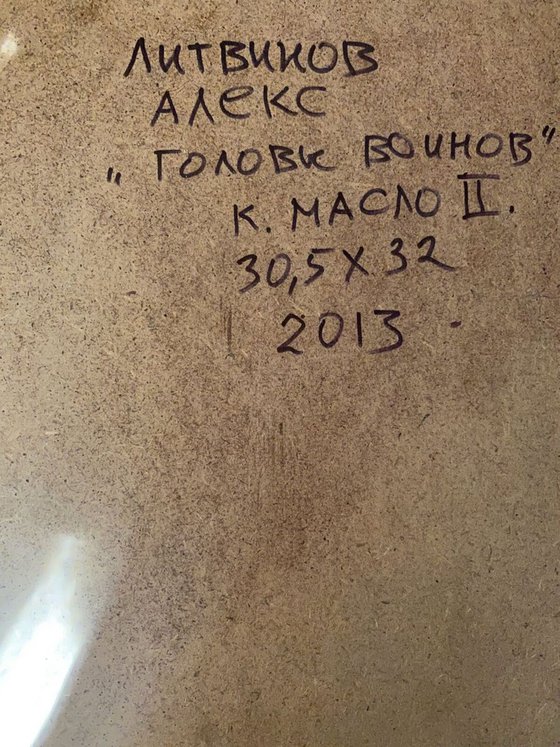 ЛИТВИНОВ
АЛЕКС
„ГОЛОВЫ ВОИНОВ"
К. МАСЛО II.
30,5X32
2013